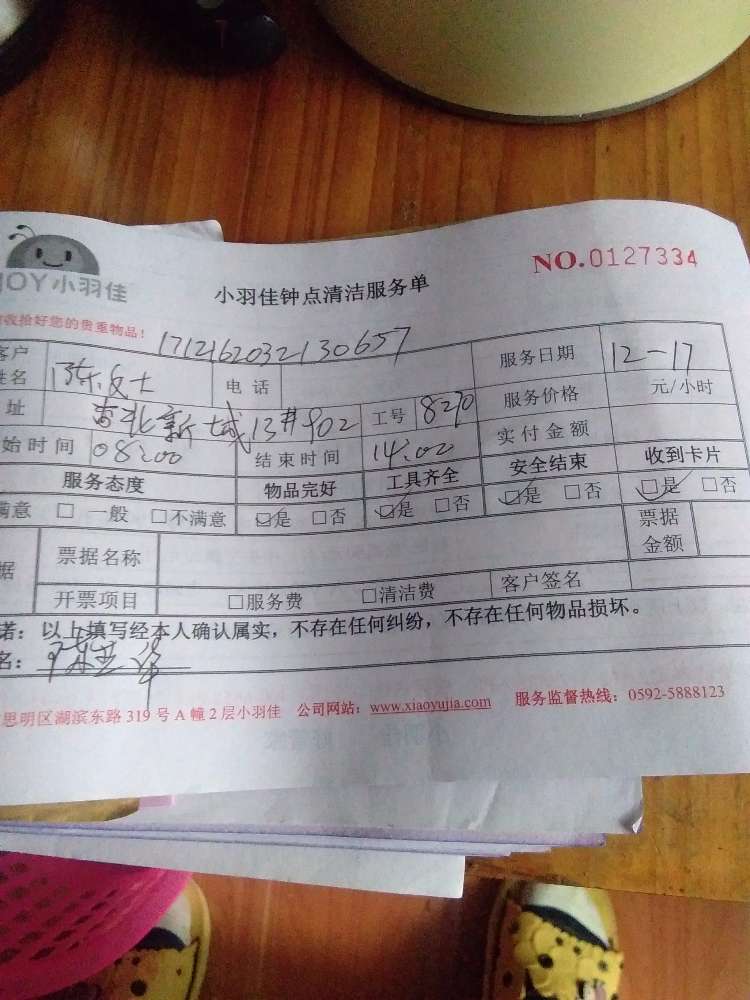 JOY小羽佳
小羽佳钟点清洁服务单
NO.0127334
收拾好您的贵重物品!
1712162032130657
客户姓名 陈女士 电话 服务日期 12-17
址 北新城13#902 工号 8270 服务价格 元/小时
始时间 08:00 结束时间 14:00 实付金额
服务态度 物品完好 工具齐全 安全结束 收到卡片
满意 □ 一般 □不满意 ☑是 □否 ☑是 □否 ☑是 □否 ☑是 □否
据 票据名称 票据金额
开票项目 □服务费 □清洁费 客户签名
诺：以上填写经本人确认属实，不存在任何纠纷，不存在任何物品损坏。
名：陈
思明区湖滨东路319号A幢2层小羽佳 公司网站：www.xiaoyujia.com 服务监督热线：0592-5888123